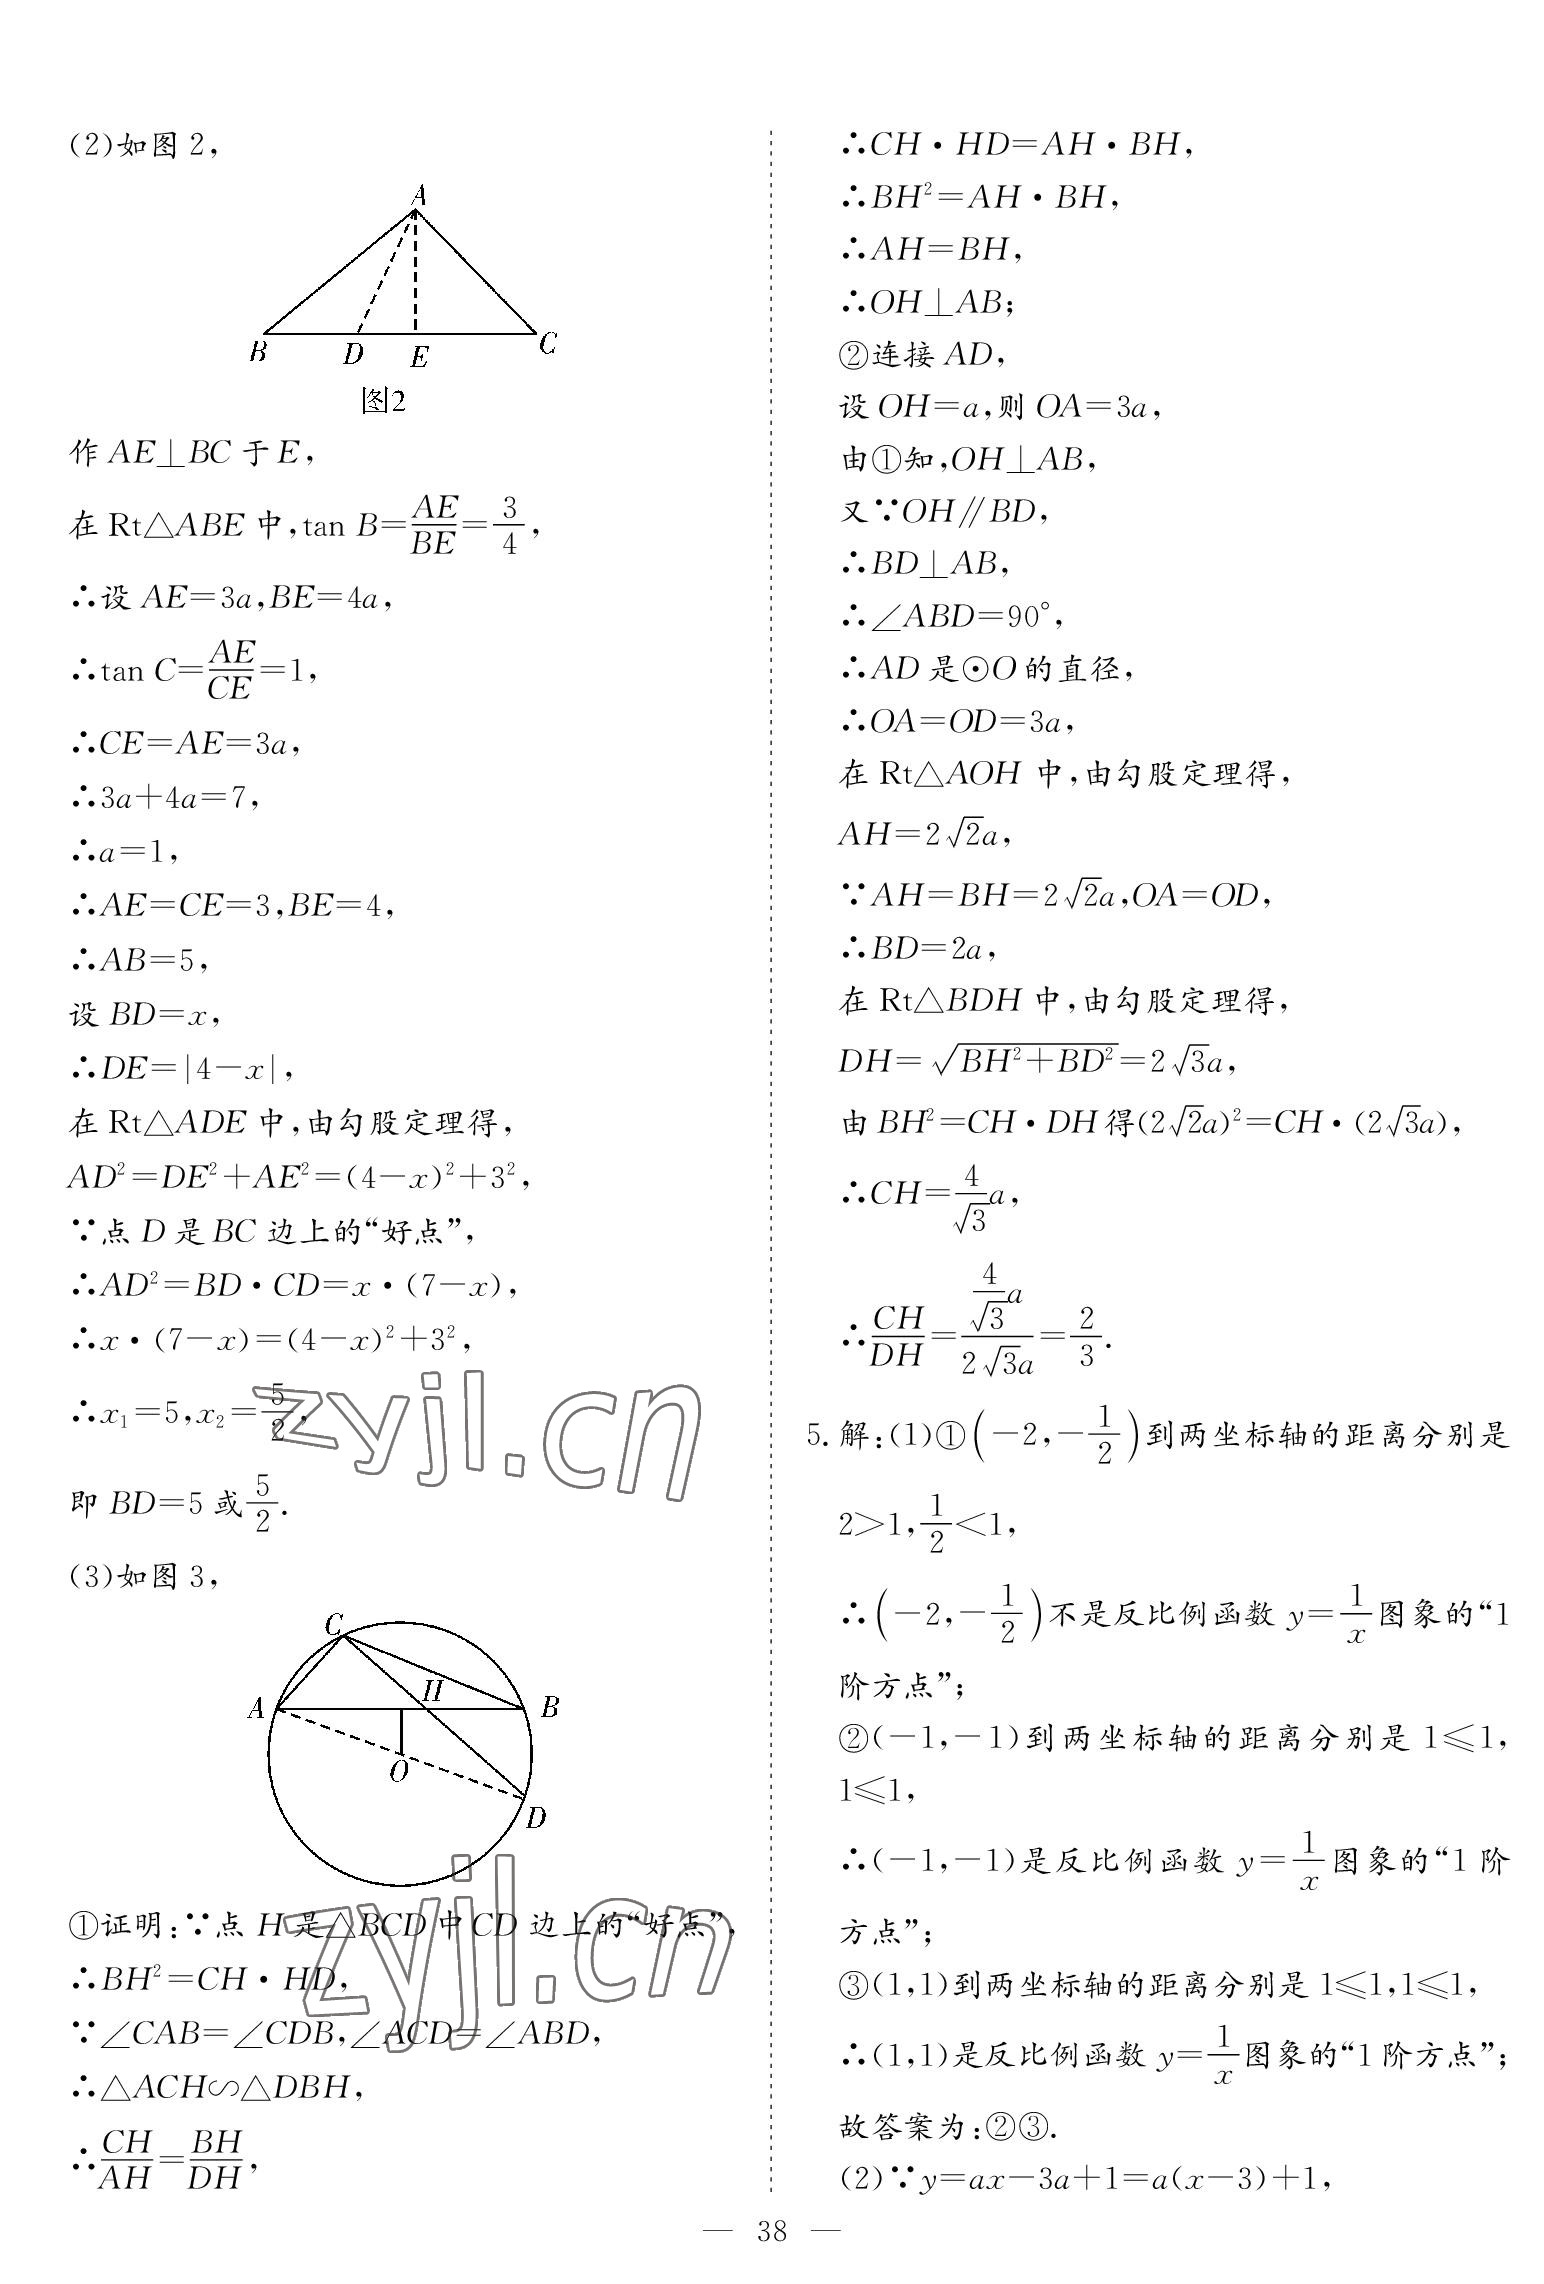 (2)如图 2,
A
B
D
E
C
图2
作 AE⊥BC 于 E,
在 Rt△ABE 中,tan B=AE/BE=3/4,
∴设 AE=3a,BE=4a,
∴tan C=AE/CE=1,
∴CE=AE=3a,
∴3a+4a=7,
∴a=1,
∴AE=CE=3,BE=4,
∴AB=5,
设 BD=x,
∴DE=|4-x|,
在 Rt△ADE 中,由勾股定理得,
AD²=DE²+AE²=(4-x)²+3²,
∵点 D 是 BC 边上的“好点”,
∴AD²=BD·CD=x·(7-x),
∴x·(7-x)=(4-x)²+3²,
∴x₁=5,x₂=5/2,
即 BD=5 或 5/2.
(3)如图 3,
C
A
H
B
O
D
①证明:∵点 H 是△BCD 中 CD 边上的“好点”,
∴BH²=CH·HD,
∵∠CAB=∠CDB,∠ACD=∠ABD,
∴△ACH∽△DBH,
∴CH/AH=BH/DH,
∴CH·HD=AH·BH,
∴BH²=AH·BH,
∴AH=BH,
∴OH⊥AB;
②连接 AD,
设 OH=a,则 OA=3a,
由①知,OH⊥AB,
又∵OH∥BD,
∴BD⊥AB,
∴∠ABD=90°,
∴AD 是⊙O 的直径,
∴OA=OD=3a,
在 Rt△AOH 中,由勾股定理得,
AH=2√2a,
∵AH=BH=2√2a,OA=OD,
∴BD=2a,
在 Rt△BDH 中,由勾股定理得,
DH=√(BH²+BD²)=2√3a,
由 BH²=CH·DH 得(2√2a)²=CH·(2√3a),
∴CH=4/√3 a,
∴CH/DH=(4/√3 a)/(2√3a)=2/3.
5. 解:(1)①(-2,-1/2)到两坐标轴的距离分别是
2>1,1/2<1,
∴(-2,-1/2)不是反比例函数 y=1/x 图象的“1
阶方点”;
②(-1,-1)到两坐标轴的距离分别是 1≤1,
1≤1,
∴(-1,-1)是反比例函数 y=1/x 图象的“1 阶
方点”;
③(1,1)到两坐标轴的距离分别是 1≤1,1≤1,
∴(1,1)是反比例函数 y=1/x 图象的“1 阶方点”;
故答案为:②③.
(2)∵y=ax-3a+1=a(x-3)+1,
— 38 —
zyjl.cn
zyjl.cn